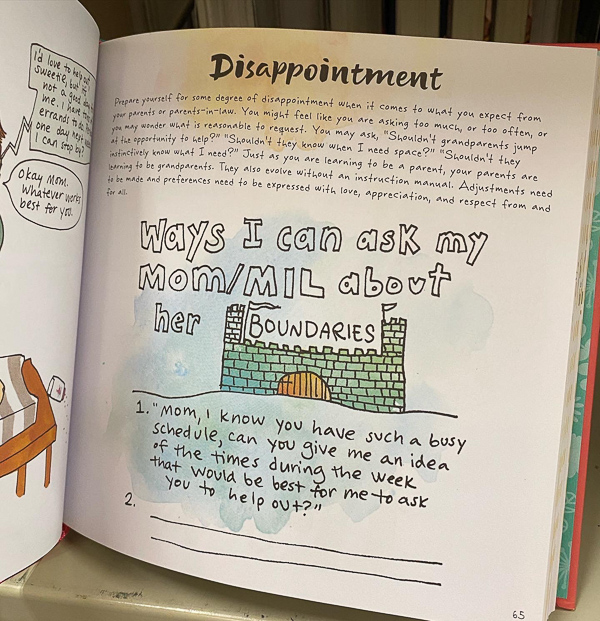 I'd love to help out
sweetie, but
not a good
me. I have
errands to
one day next
I can stop by?
Okay Mom.
Whatever works
best for you.
Disappointment
Prepare yourself for some degree of disappointment when it comes to what you expect from
your parents or parents-in-law. You might feel like you are asking too much, or too often, or
you may wonder what is reasonable to request. You may ask, "Shouldn't grandparents jump
at the opportunity to help?" "Shouldn't they know when I need space?" "Shouldn't they
instinctively know what I need?" Just as you are learning to be a parent, your parents are
learning to be grandparents. They also evolve without an instruction manual. Adjustments need
to be made and preferences need to be expressed with love, appreciation, and respect from and
for all.
Ways I can ask my
Mom/MIL about
her BOUNDARIES
1. "Mom, I know you have such a busy
schedule, can you give me an idea
of the times during the week
that would be best for me to ask
you to help out?"
2.
65